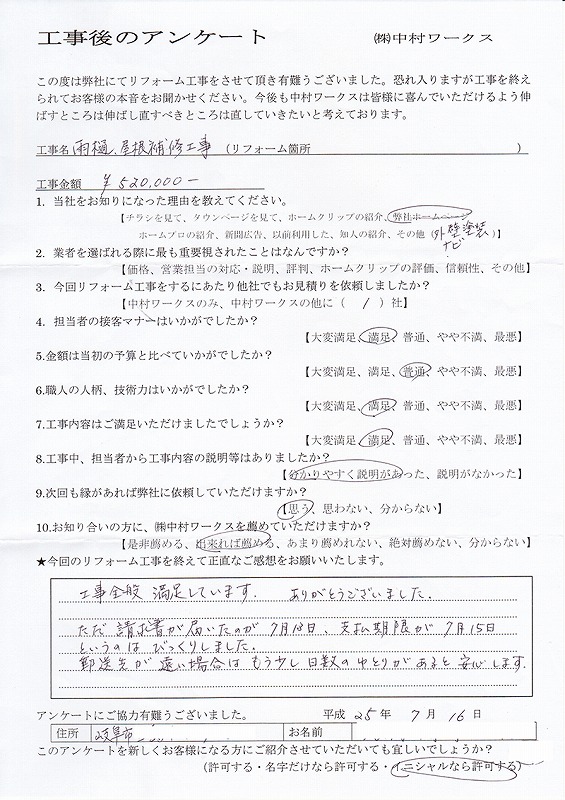 工事後のアンケート ㈱中村ワークス
この度は弊社にてリフォーム工事をさせて頂き有難うございました。恐れ入りますが工事を終え
られてお客様の本音をお聞かせください。今後も中村ワークスは皆様に喜んでいただけるよう伸
ばすところは伸ばし直すべきところは直していきたいと考えております。
工事名 雨樋、屋根補修工事 (リフォーム箇所 )
工事金額 ¥520,000-
1. 当社をお知りになった理由を教えてください。
【チラシを見て、タウンページを見て、ホームクリップの紹介、弊社ホームページ
ホームプロの紹介、新聞広告、以前利用した、知人の紹介、その他(外壁塗装ナビ)】
2. 業者を選ばれる際に最も重要視されたことはなんですか?
【価格、営業担当の対応・説明、評判、ホームクリップの評価、信頼性、その他】
3. 今回リフォーム工事をするにあたり他社でもお見積りを依頼しましたか?
【中村ワークスのみ、中村ワークスの他に ( 1 ) 社】
4. 担当者の接客マナーはいかがでしたか?
【大変満足、満足、普通、やや不満、最悪】
5.金額は当初の予算と比べていかがでしたか?
【大変満足、満足、普通、やや不満、最悪】
6.職人の人柄、技術力はいかがでしたか?
【大変満足、満足、普通、やや不満、最悪】
7.工事内容はご満足いただけましたでしょうか?
【大変満足、満足、普通、やや不満、最悪】
8.工事中、担当者から工事内容の説明等はありましたか?
【分かりやすく説明があった、説明がなかった】
9.次回も縁があれば弊社に依頼していただけますか?
【思う、思わない、分からない】
10.お知り合いの方に、㈱中村ワークスを薦めていただけますか?
【是非薦める、出来れば薦める、あまり薦めれない、絶対薦めない、分からない】
★今回のリフォーム工事を終えて正直なご感想をお願いいたします。
工事全般 満足しています. ありがとうございました.
ただ 請求書が届いたのが 7月13日、支払期限が 7月15日
というのは びっくりしました.
郵送先が遠い場合は もう少し日数のゆとりがあると 安心します.
アンケートにご協力有難うございました。 平成 25年 7月 16日
住所 岐阜市 お名前
このアンケートを新しくお客様になる方にご紹介させていただいても宜しいでしょうか?
(許可する・名字だけなら許可する・イニシャルなら許可する)